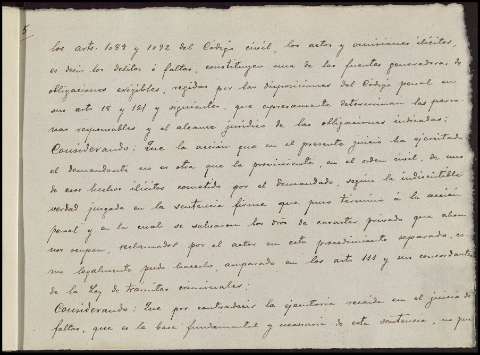 5
los arts. 1089 y 1092 del Código civil, los actos y omisiones ilícitos,
es decir los delitos ó faltas, constituyen una de las fuentes generadoras de
obligaciones exigibles, regidas por las disposiciones del Código penal en
sus arts 18 y 121 y siguientes, que expresamente determinan las perso-
nas responsables y el alcance jurídico de las obligaciones indicadas;
Considerando: Que la acción que en el presente juicio ha ejercitado
el demandante no es otra que la proviniente en el orden civil, de uno
de esos hechos ilícitos cometido por el demandado, según la indiscutible
verdad juzgada en la sentencia firme que puso término á la acción
penal y en la cual se salvaron los dros de caracter privado que ahora
nos ocupan, reclamados por el actor en este procedimiento separado, co-
mo legalmente pudo hacerlo, amparado en los art 111 y sus concordantes
de la Ley de trámites criminales;
Considerando: Que por contradecir la ejecutoria recaida en el juicio de
faltas, que es la base fundamental y necesaria de esta sentencia, no pue